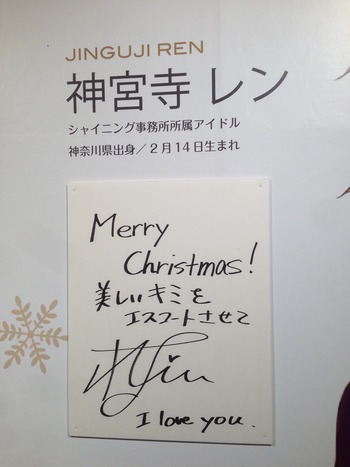 JINGUJI REN
神宮寺 レン
シャイニング事務所所属アイドル
神奈川県出身／2月14日生まれ
Merry
Christmas!
美しいキミを
エスコートさせて
I love you.